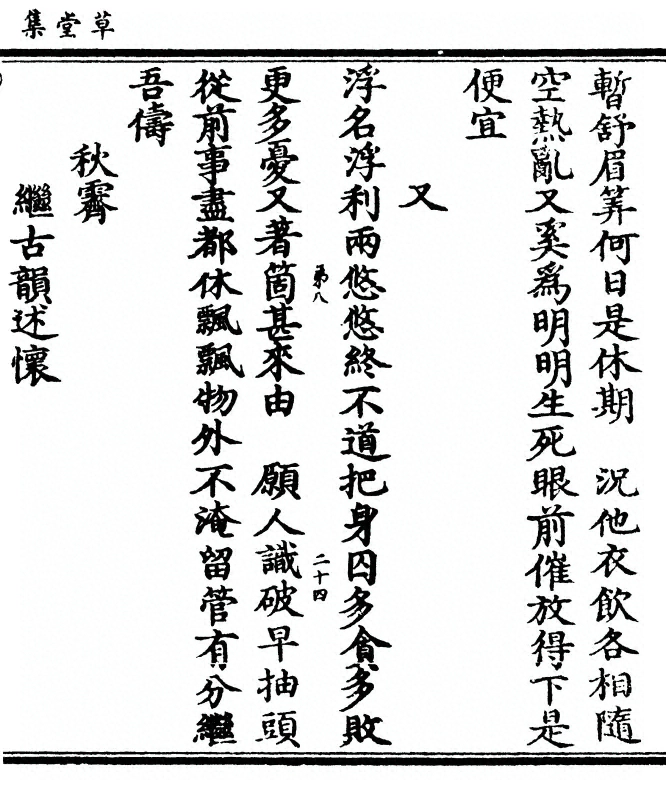 草堂集
暫舒眉筭何日是休期　況他衣飲各相隨
空熱亂又奚爲明明生死眼前催放得下是
便宜
又
浮名浮利兩悠悠終不道把身囚多貪多敗
第八　二十四
更多憂又著箇甚來由　願人識破早抽頭
從前事盡都休飄飄物外不淹留管有分繼
吾儔
秋霽
繼古韻述懷